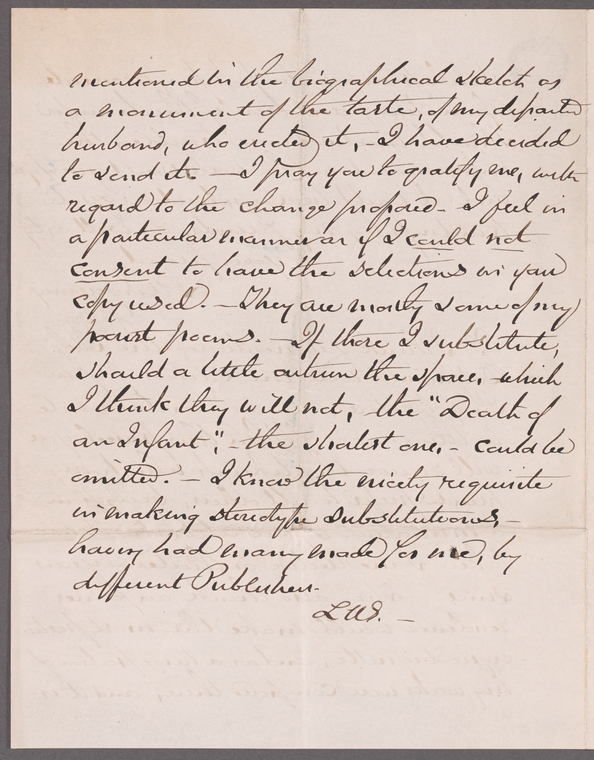 mentioned in the biographical sketch as
a monument of the taste, of my departed
husband, who erected it, - I have decided
to send it. - I pray you to gratify me, with
regard to the change proposed. I feel in
a particular manner as if I could not
consent to have the selections in your
copy used. - They are mostly some of my
poorest poems. - If those I substitute,
should a little outrun the space, which
I think they will not, the "Death of
an Infant", - the shortest one, - could be
omitted. - I know the nicety requisite
in making stereotype substitutions, -
having had many made for me, by
different Publishers.
L.H.S. -